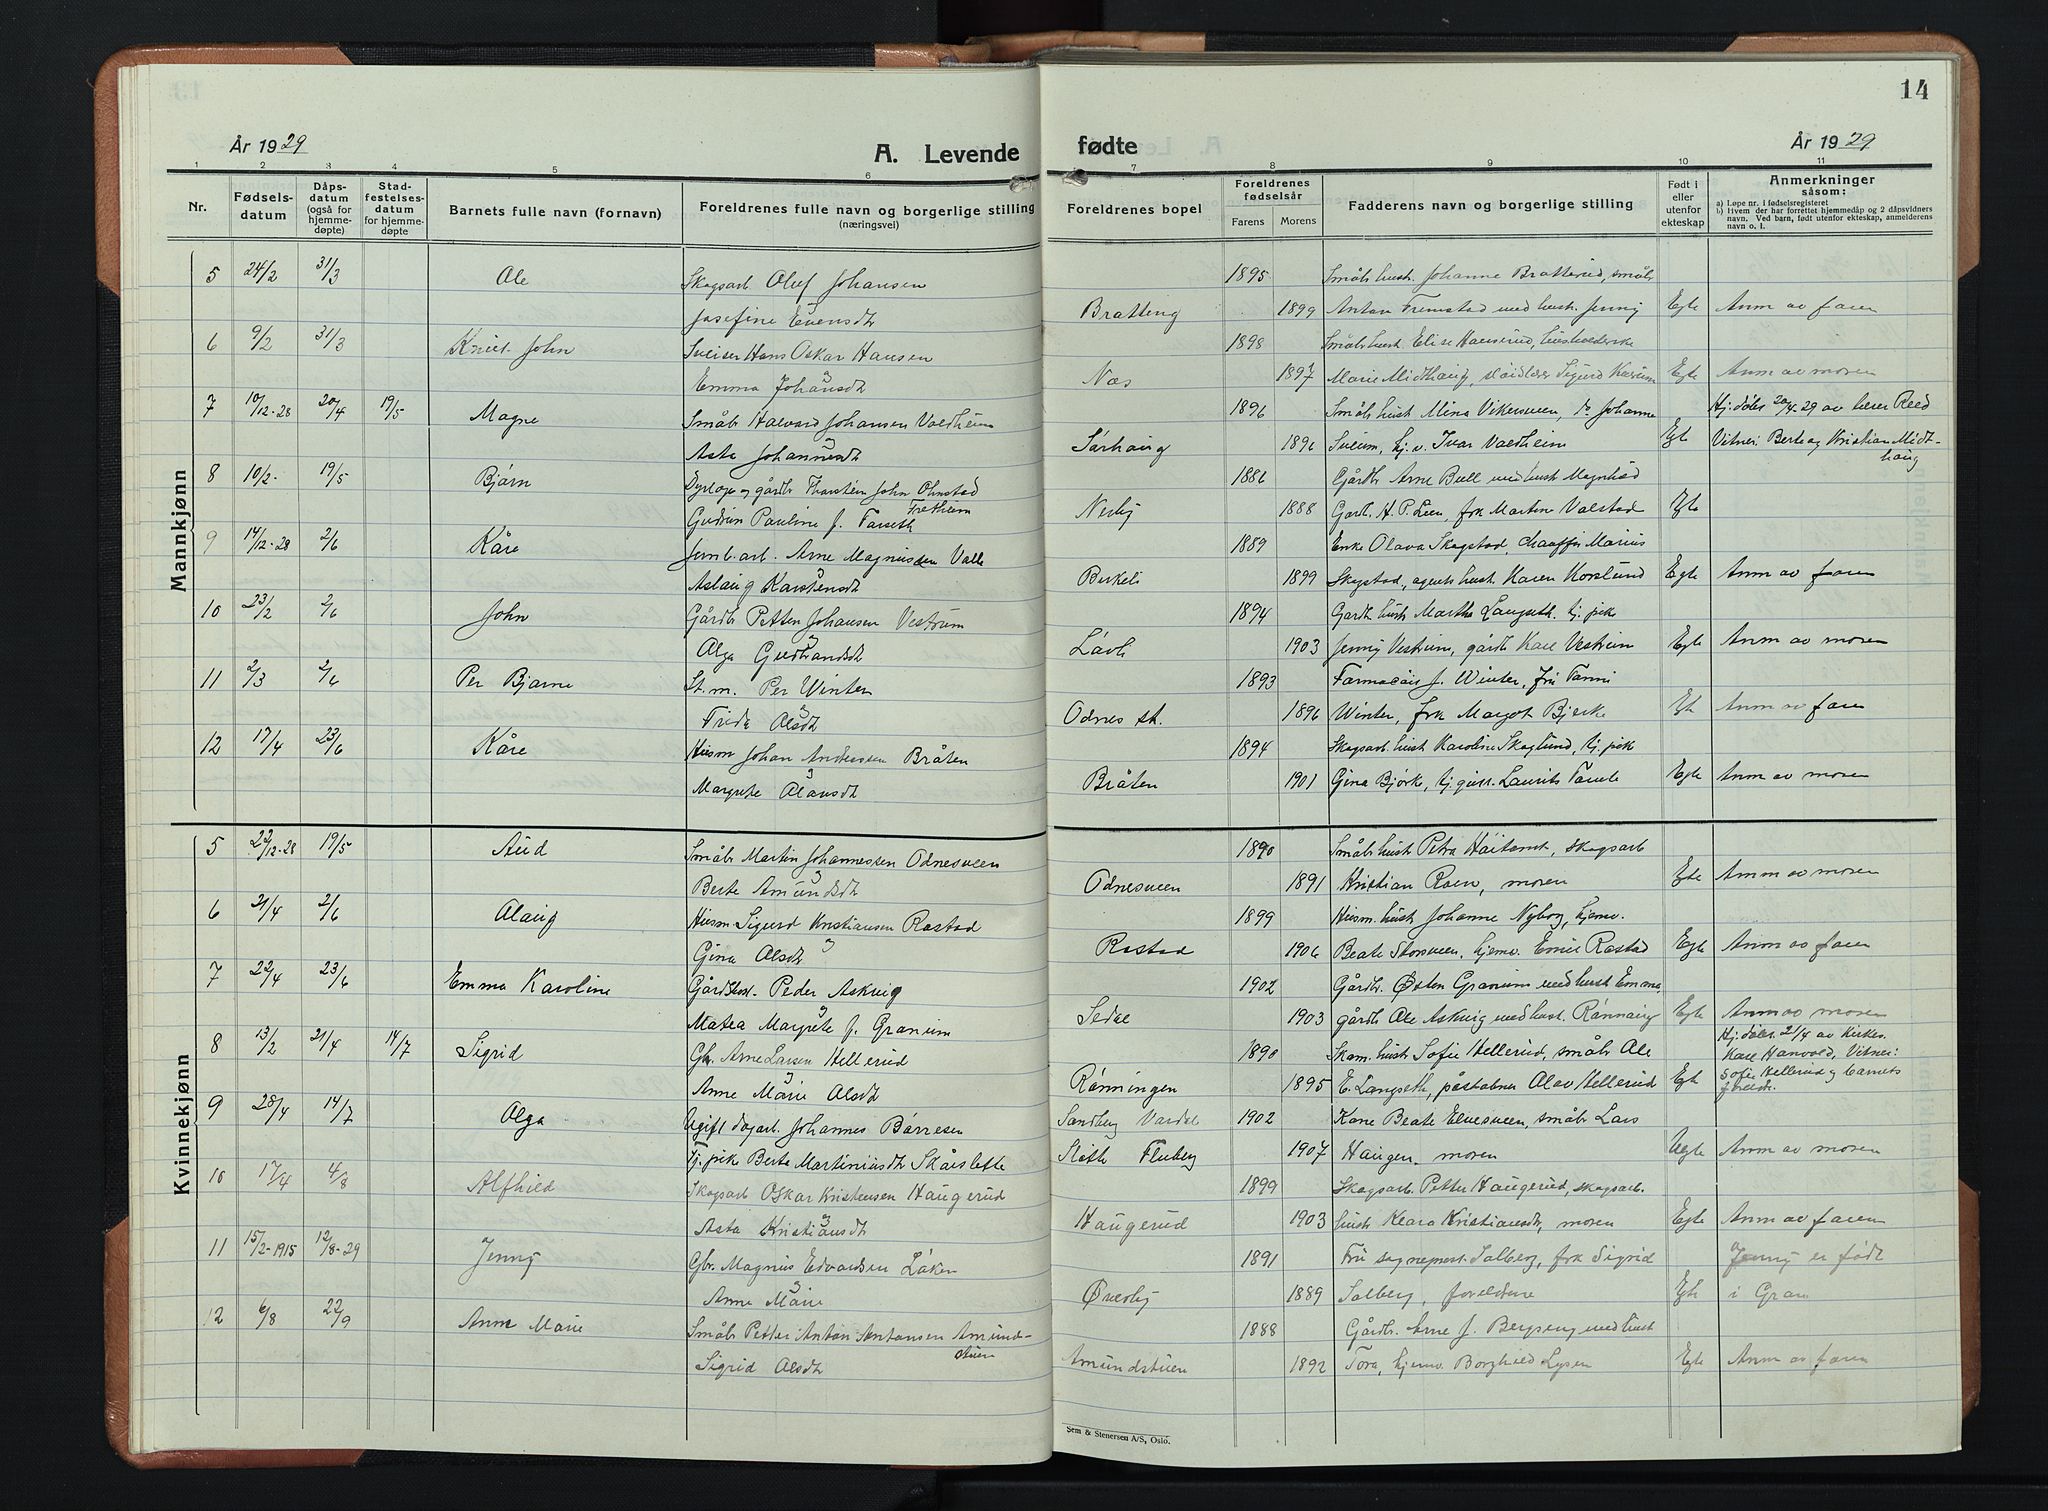 14
År 1929
A. Levende
fødte
År 1929
1 2 3 4 5 6 7 8 9 10 11
Nr.
Fødsels-
datum
Dåps-
datum
(også for
hjemme-
døpte)
Stad-
festelses-
datum
for hjemme-
døpte
Barnets fulle navn (fornavn)
Foreldrenes fulle navn og borgerlige stilling
(næringsvei)
Foreldrenes bopel
Foreldrenes
fødselsår
Farens Morens
Fadderens navn og borgerlige stilling
Født i
eller
utenfor
ekteskap
Anmerkninger
såsom:
a) Løpe nr. i fødselsregisteret
b) Hvem der har forrettet hjemmedåp og 2 dåpsvidners
navn. Ved barn, født utenfor ekteskap, anmelderens
navn o. l.
Mannkjønn
5 24/2 31/3 Ole Skogsarb Oluf Johansen 1895 Småbr. hust. Johanne Bratterud, småbr
Josefine Evensdt Bratteng 1899 Anton Fremstad med hust. Jenny Egte Anm av faren
6 9/2 31/3 Knut John Sveiser Hans Oskar Hansen 1898 Småbr. hust. Elise Hauserud, husholderske
Emma Johansdt Næs 1897 Marie Midthaug, Sigurd Egte Anm av moren
7 10/12-28 20/4 19/5 Magne Småbr Halvard Johansen Valdheim 1896 Småbr. hust Mina Vikersveen, do Johanne Hj.døbt 20/4-29 av lærer Reed
Asta Johannesdt Sørhaug 1896 Sveum, hj.v. Ivar Valdheim Egte Vitner: Berte og Kristian Midt-
haug
8 10/2 19/5 Bjørn Dyrlæge og gårdbr Thorstein John Ohnstad 1886 Gårdbr Arne Bull med hust Magnhild
Fretheim
Gudrun Pauline f. Tarseth Nerby 1888 Gardb. H. P. Lien, frk Martine Valstad Egte
9 14/12-28 2/6 Kåre Jernb.arb. Arne Magnussen Valle 1889 Enke Olava Skogstad, chauffør Marius
Aslaug Karstensdt Birkeli 1899 Skogstad, agents hust Karen Korslund Egte Anm av faren
10 23/2 2/6 John Gårdbr Petter Johansen Vestrum 1894 Gardb hust Marthe Langseth, tj. pike
Olga Gudbrandsdt Løvli 1903 Jenny Vestrum, gårdb Karl Vestrum Egte Anm av moren
11 2/3 2/6 Per Bjarne St. m. Per Winter 1893 Farmacøit J. Winter, fru Fanni
Frida Olsdt Odnes st. 1896 Winter, frk Margot Bjerke Egte Anm av faren
12 17/4 23/6 Kåre Husm Johan Andreassen Bråten 1894 Skogsarb. hust Karoline Skoglund, tj. pike
Margrete Olausdt Bråten 1901 Gina Bjørke, tj.gutt. Laurits Egte Anm av moren
Kvinnekjønn
5 22/12-28 19/5 Aud Småbr Martin Johannessen Odnesveen 1890 Småbr. hust Petra Høitomt, skogsarb
Berte Amundsdt Odnesveen 1891 Kristian Roen, moren Egte Anm av moren
6 21/4 2/6 Olaug Husm. Sigurd Kristiansen Rostad 1899 Husm. hust Johanne Nyborg, hjemv.
Gina Olsdt Rostad 1906 Beate Storsveen, hjemv. Emil Rostad Egte Anm av faren
7 22/4 23/6 Emma Karoline Gårdbest. Peder Askvig 1902 Gårdbr. Østen Granum med hust Emma,
Matea Margrete f. Granum Sedal 1903 gårdb Ole Askvig med hust. Rønnaug Egte Anm av moren
8 13/2 21/4 14/7 Sigrid Gbr. Arne Larsen Hellerud 1890 Skom. hust Sofie Hellerud, småbr Ole Hj.døbt 21/4 av Kirkes.
Karl Hanvold, Vitner:
Anne Marie Olsdt Rønningen 1895 E. Langseth, påstabner Olav Hellerud Egte Sofie Hellerud og barnets
foreldre.
9 28/4 14/7 Olga Ugift dagarb. Johannes Børresen Sandberg Vardal 1902 Kone Beate Elvesveen, småbr Lars
Tj. pike Berte Martiniusdt Skårslette Fluberg 1907 Haugen, moren Uegte Anm av moren
10 17/4 4/8 Alfhild Skogsarb Oskar Kristensen Haugerud 1899 Skogsarb. Petter Haugerud, skogsarb.
Asta Kristiansdt Haugerud 1903 hust Klara Kristiansdt, moren Egte Anm av faren
11 15/2-1915 12/8-29 Jenny Gbr. Magnus Edvardsen Løken 1891 Fru sogneprest Solberg, frk Sigrid Jenny er født
Anne Marie Øverby 1889 Solberg, foreldrene Egte i Gran
12 6/8 22/9 Anne Marie Småbr Petter Anton Antonsen Amund- 1888 Gårdbr. Arne J. Bergseng med hust
stuen
Sigrid Olsdt Amundstuen 1892 Tora, hjemv. Borghild Lysen Egte Anm av faren
Sem & Stenersen A/S, Oslo.